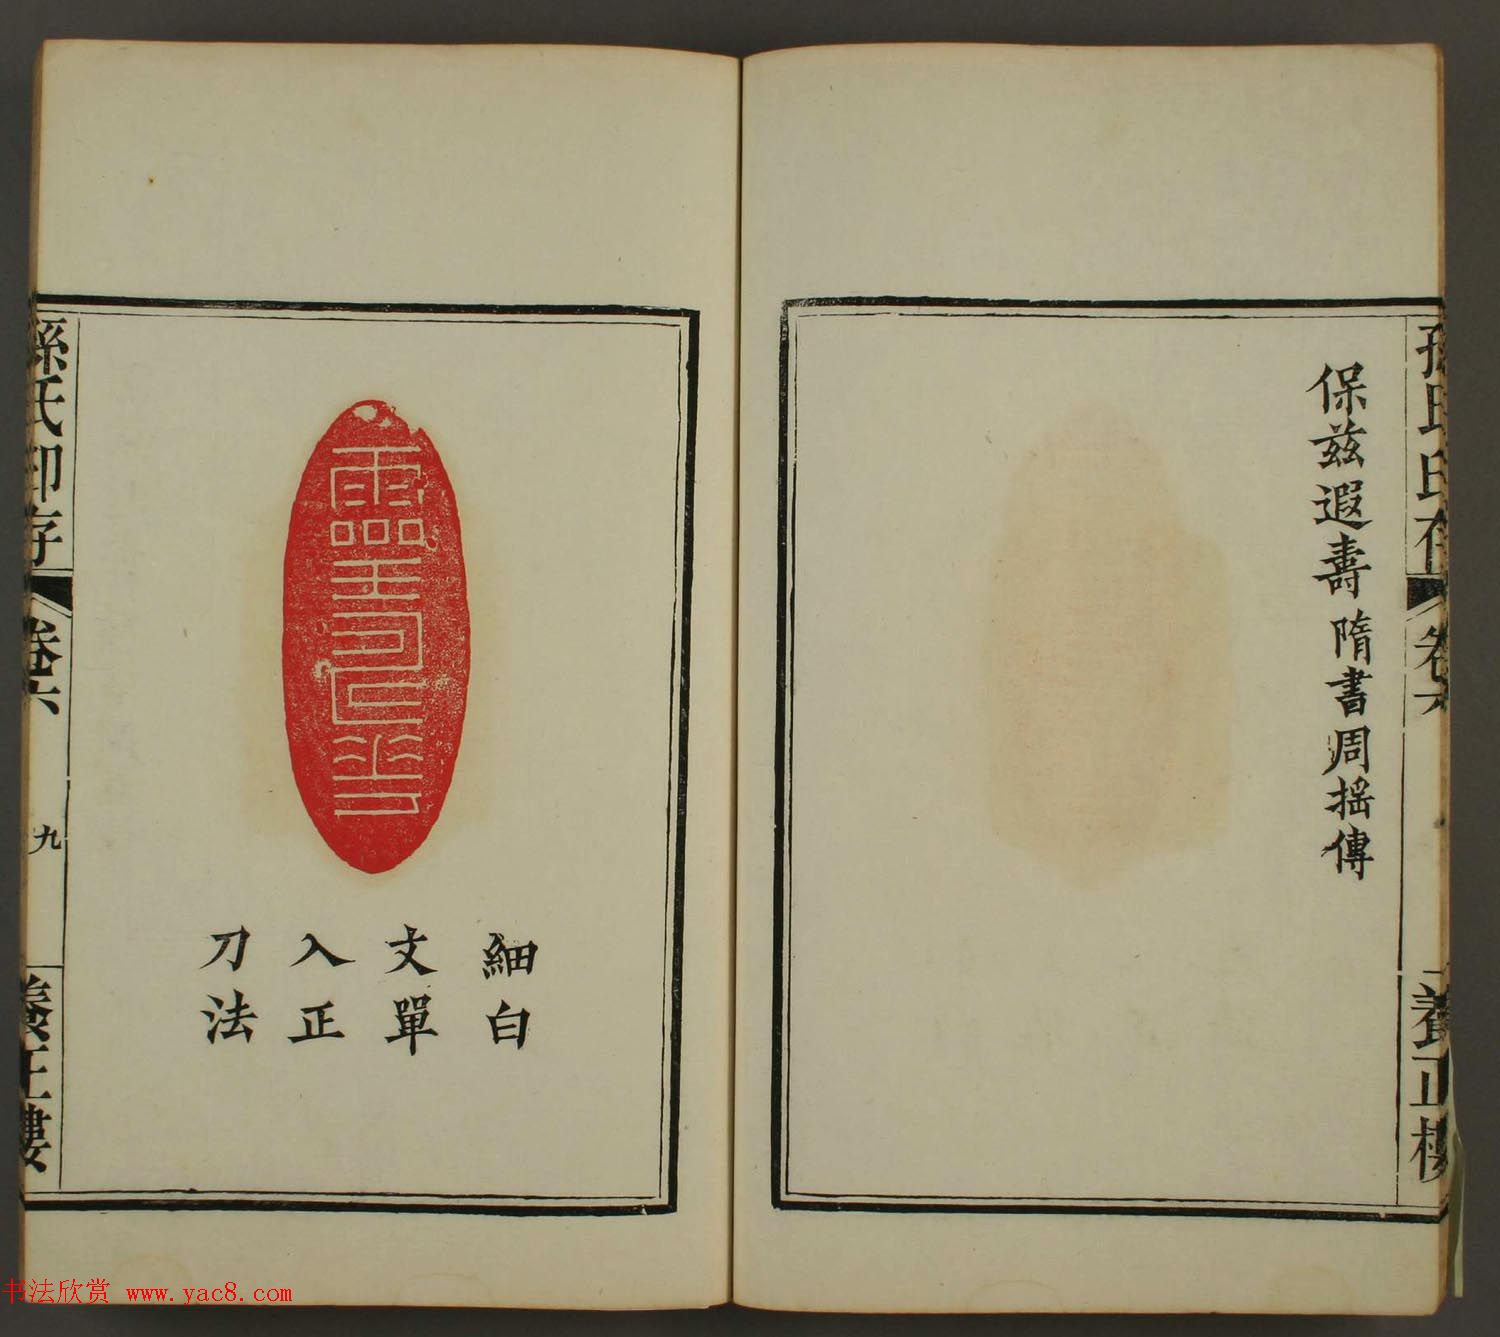 孫氏印存
卷六
養正樓
保兹遐壽 隋書周搖傳
細白
文單
入正
刀法
孫氏印存
卷六
九
養正樓
书法欣赏 www.yac8.com